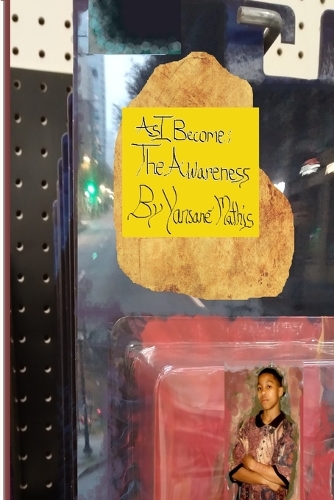 As I Become:
The Awareness
By Yansané Mathis